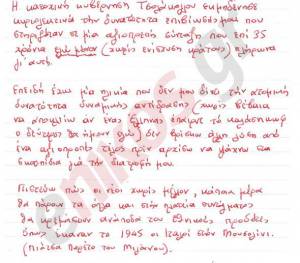 Η κατοχική κυβέρνηση Τσολάκογλου εκμηδένισε
κυριολεκτικά την δυνατότητα επιβίωσής μου που
στηριζόταν σε μία αξιοπρεπή σύνταξη που επί 35
χρόνια εγώ μόνον (χωρίς ενίσχυση κράτους) πλήρωνα
γι' αυτή.
Επειδή έχω μια ηλικία που δεν μου δίνει την ατομική
δυνατότητα δυναμικής αντίδρασης (χωρίς βέβαια
να αποκλείω αν ένας έλληνας έπαιρνε το καλάσνικωφ
ο δεύτερος θα ήμουν εγώ) δεν βρίσκω άλλη λύση από
ένα αξιοπρεπές τέλος πριν αρχίσω να ψάχνω στα
σκουπίδια για την διατροφή μου.
Πιστεύω πως οι νέοι χωρίς μέλλον, κάποια μέρα
θα πάρουν τα όπλα και στην πλατεία συντάγματος
θα κρεμάσουν ανάποδα τους εθνικούς προδότες
όπως έκαναν το 1945 οι Ιταλοί στον Μουσολίνι
(πιάτσα Λορέτο του Μιλάνου).